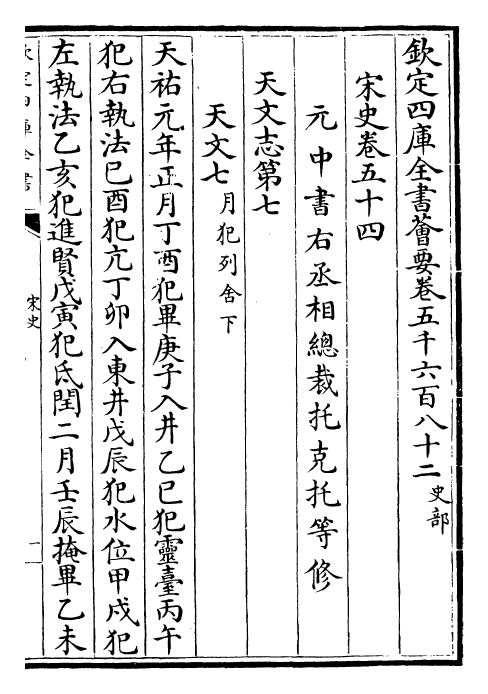 欽定四庫全書薈要卷五千六百八十二 史部
宋史卷五十四
元中書右丞相總裁托克托等修
天文志第七
天文七 月犯列舍下
天祐元年正月丁酉犯畢庚子入井乙巳犯靈臺丙午
犯右執法己酉犯亢丁卯入東井戊辰犯水位甲戌犯
左執法乙亥犯進賢戊寅犯氐閏二月壬辰掩畢乙未
宋史
一